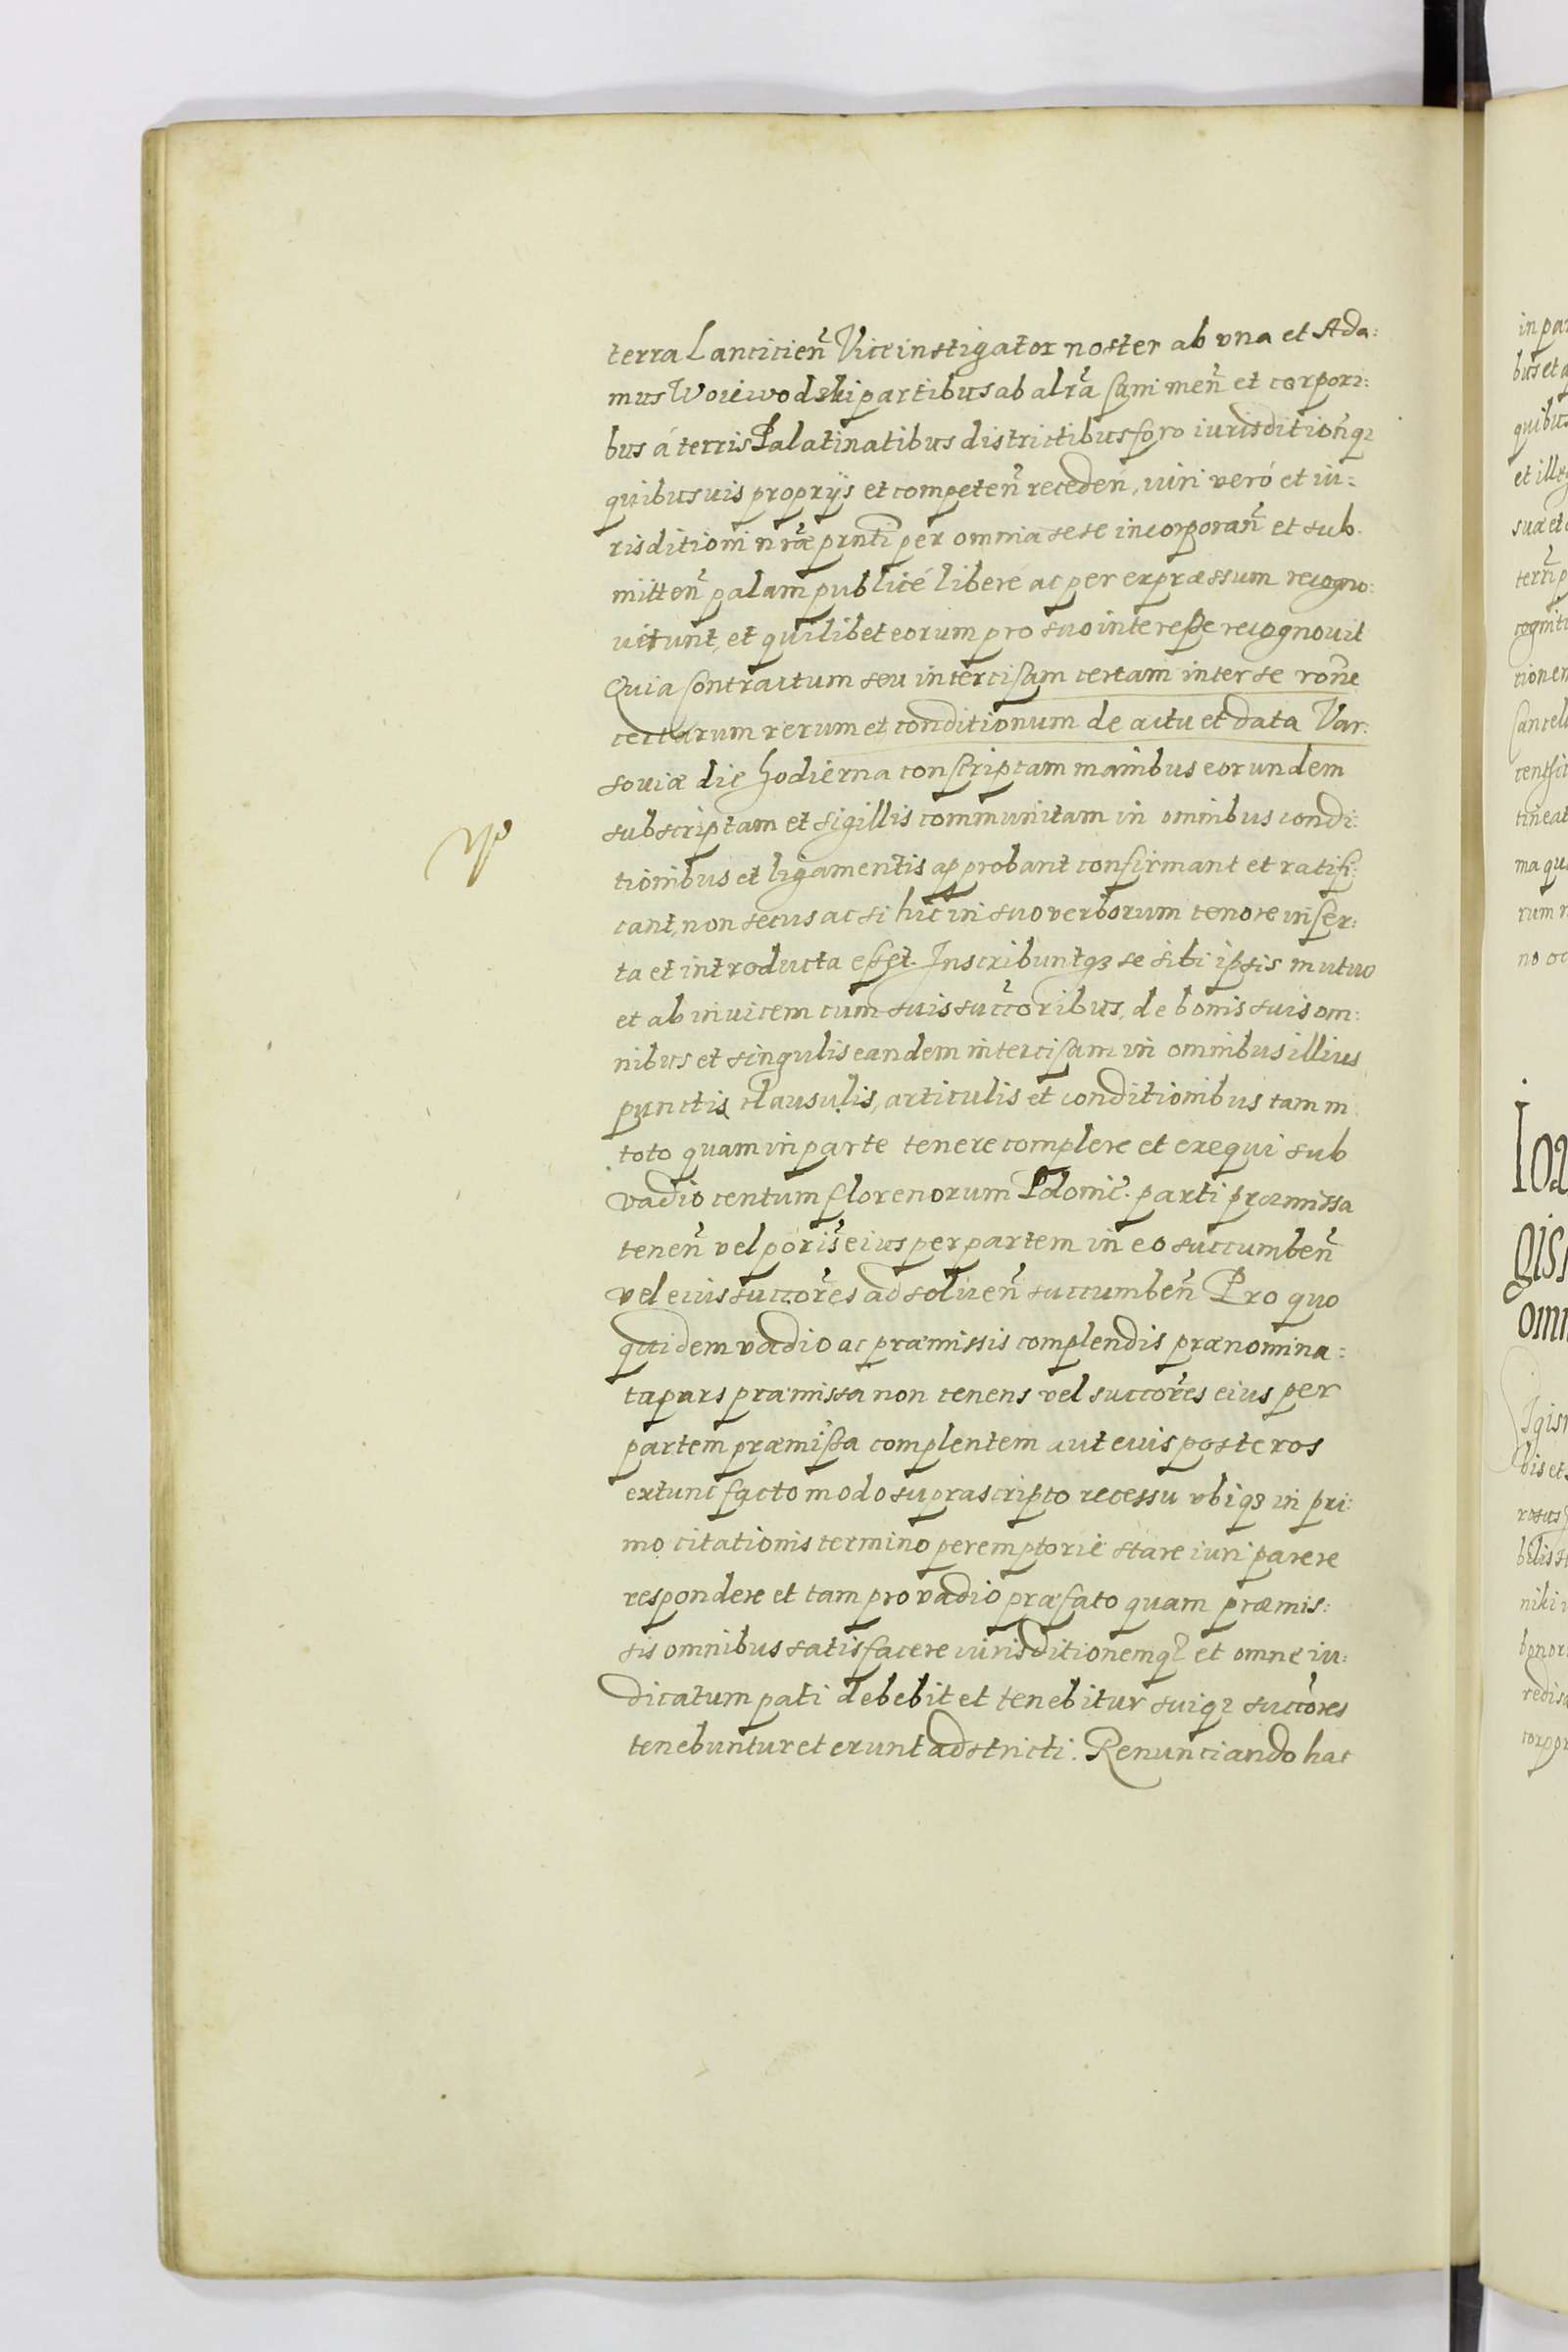 terra Lancicien̄ Viceinstigator noster ab vna et Ada:
mus Woiewodzki partibus ab alr̃a sani men̄ et corpori:
bus á terris Palatinatibus districtibus foro iurisdition̄q3
quibusuis proprijs et competen̄ receden̄, iuri veró et iu:
risditioni nr̃æ prn̄ti per omnia sese incorporan̄ et sub:
mitten̄ palam publicé libere ac per expræssum recogno:
uerunt, et quilibet eorum pro suo interesse recognouit
Quia Contractum seu intercisam certam inter se rōne
certarum rerum et conditionum de actu et data Var:
souiæ die hodierna conscriptam manibus eorundem
subscriptam et sigillis communitam in omnibus condi:
tionibus et ligamentis approbant confirmant et ratifi:
cant, non secus ac si hic in suo verborum tenore inser:
ta et introducta esset. Inscribuntq3 se sibi ipsis mutuo
et ab inuicem cum suis succ̃oribus, de bonis suis om:
nibus et singulis eandem intercisam in omnibus illius
punctis, clausulis, articulis et conditionibus tam in
toto quam in parte tenere complere et exequi sub
vadio centum florenorum Polonic̃. parti præmissa
tenen̄ vel por̃is eius per partem in eo succumben̄
vel eius succor̃es adsoluen̄ succumben̄ Pro quo
quidem vadio ac præmissis complendis prænomina:
ta pars præmissa non tenens vel succor̃es eius per
partem præmissa complentem aut euis posteros
extunc facto modo suprascripto recessu vbiq3 in pri:
mo citationis termino peremptorié stare iuri parere
respondere et tam pro vadio præfato quam præmis:
sis omnibus satisfacere iurisditionemq3 et omne iu:
dicatum pati debebit et tenebitur suiq3 succor̃es
tenebuntur et erunt adstricti. Renunciando hac